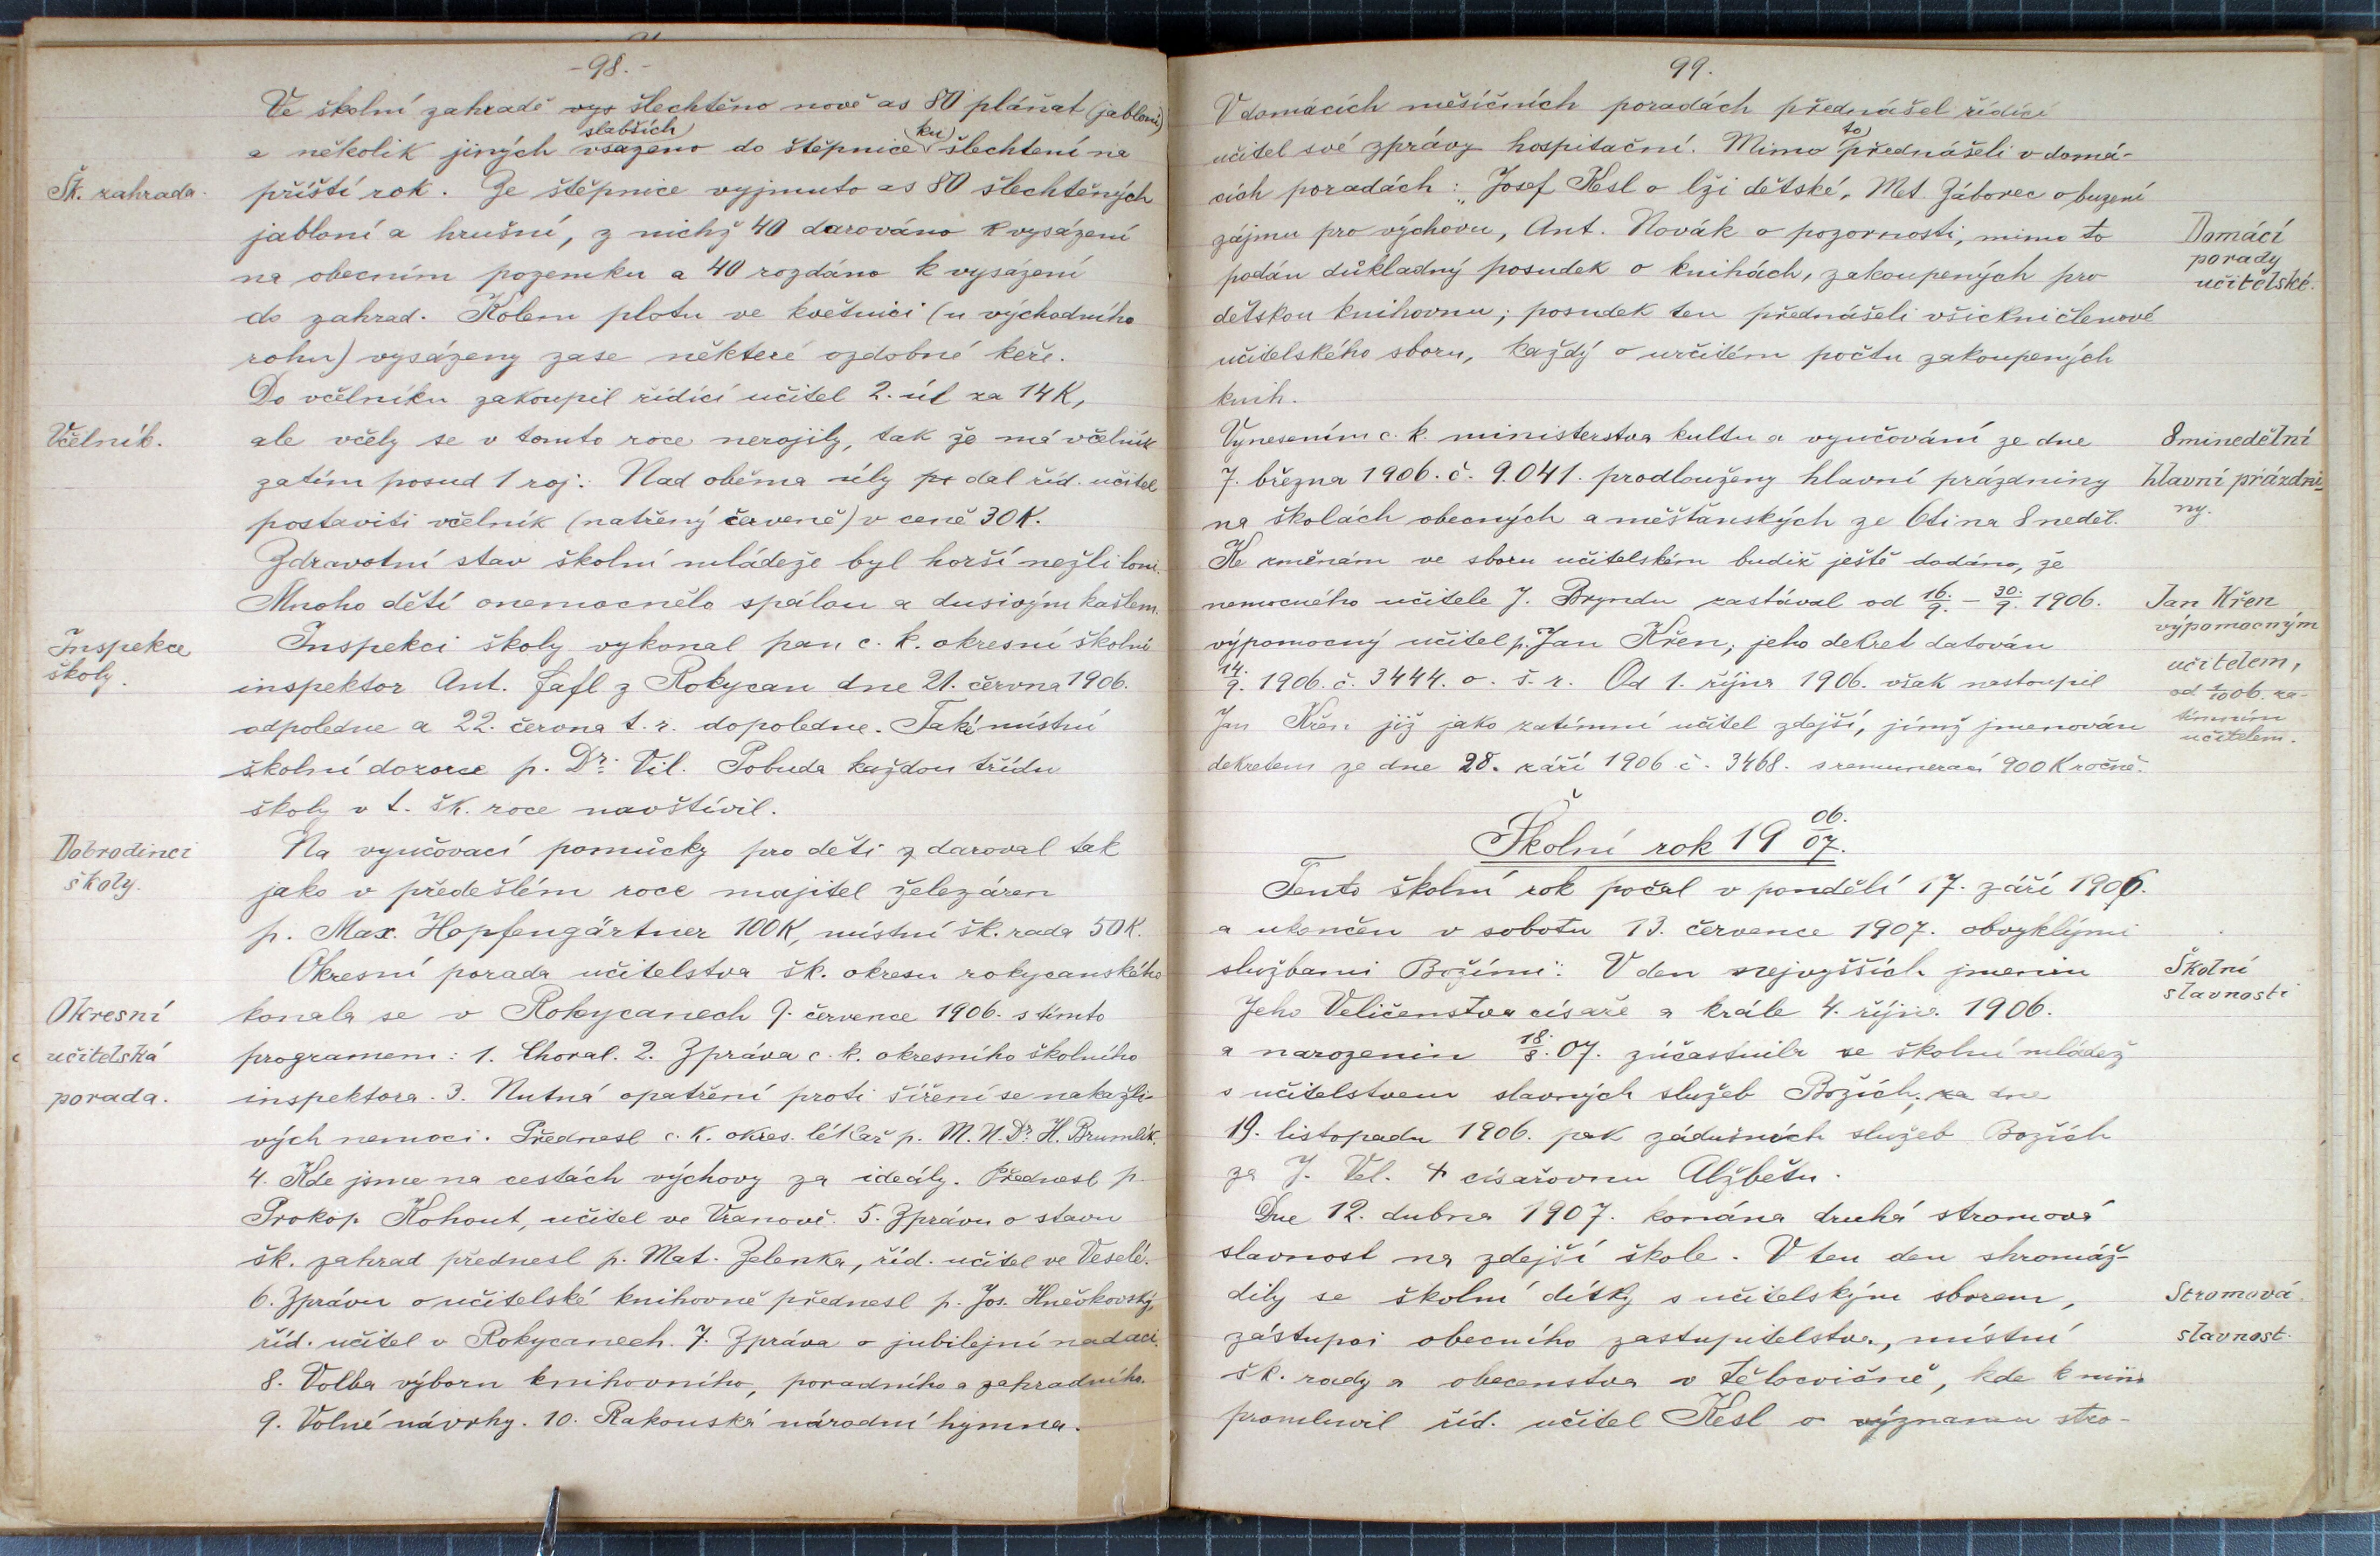 -98.-
Ve školní zahradě vys šlechtěno nově as 80 pláňat (jabloní)
a několik jiných slabších vsazeno do štěpnice ku šlechtění na
Šk. zahrada.
příští rok. Ze štěpnice vyjmuto as 80 šlechtěných
jabloní a hrušní, z nichž 40 darováno k vysázení
na obecním pozemku a 40 rozdáno k vysázení
do zahrad. Kolem plotu ve květnici (u východního
rohu) vysázeny zase některé ozdobné keře.
Do včelníku zakoupil řídící učitel 2. úl za 14K,
Včelník.
ale včely se v tomto roce nerojily, tak že má včelník
zatím posud 1 roj. Nad oběma úly po dal říd. učitel
postaviti včelník (natřený červeně) v ceně 30K.
Zdravotní stav školní mládeže byl horší nežli loni.
Mnoho dětí onemocnělo spálou a dusivým kašlem.
Inspekce
školy.
Inspekci školy vykonal pan c. k. okresní školní
inspektor Ant. Šafl z Rokycan dne 21. června 1906.
odpoledne a 22. června t. r. dopoledne. Také místní
školní dozorce p. Dr. Vil. Pobuda každou třídu
školy v t. šk. roce navštívil.
Dobrodinci
školy.
Na vyučovací pomůcky pro děti z daroval tak
jako v předešlém roce majitel železáren
p. Max. Hopfengärtner 100K, místní šk. rada 50K.
Okresní porada učitelstva šk. okresu rokycanského
Okresní
učitelská
porada.
konala se v Rokycanech 9. července 1906. s tímto
programem: 1. Choral. 2. Zpráva c. k. okresního školního
inspektora. 3. Nutná opatření proti šíření se nakažli-
vých nemocí. Přednesl c. k. okres. lékař p. M. U. Dr. H. Brumlík.
4. Kde jsme na cestách výchovy za ideály. Přednesl p.
Prokop. Kohout, učitel ve Vranově. 5. Zprávu o stavu
šk. zahrad přednesl p. Mat. Zelenka, říd. učitel ve Veselé.
6. Zprávu o učitelské knihovně přednesl p. Jos. Hněvkovský,
říd. učitel v Rokycanech. 7. Zpráva o jubilejní nadaci.
8. Volba výboru knihovního, poradního a zahradního.
9. Volné návrhy. 10. Rakouská národní hymna.
99.
V domácích měsíčních poradách přednášel řídící
učitel své zprávy hospitační. Mimo to přednášeli v domá-
cích poradách: Josef Kesl o lži dětské, Met. Záborec o buzení
zájmu pro výchovu, Ant. Novák o pozornosti, mimo to
podán důkladný posudek o knihách, zakoupených pro
Domácí
porady
učitelské.
dětskou knihovnu; posudek ten přednášeli všickni členové
učitelského sboru, každý o určitém počtu zakoupených
knih.
Vynesením c. k. ministerstva kultu a vyučování ze dne
7. března 1906. č. 9.041. prodlouženy hlavní prázdniny
na školách obecných a měšťanských ze 6ti na 8 neděl.
8minedělní
hlavní prázdni-
ny.
Ke změnám ve sboru učitelském budiž ještě dodáno, že
nemocného učitele J. Bryndu zastával od 16./9. – 30./9. 1906.
výpomocný učitel p. Jan Křen, jeho dekret datován
14./9. 1906. č. 3444. o. š. r. Od 1. října 1906. však nastoupil
Jan Křen již jako zatímní učitel zdejší, jímž jmenován
dekretem ze dne 28. září 1906 č. 3468. s remunerací 900K ročně.
Jan Křen
výpomocným
učitelem,
od 1/10 06. za-
tímním
učitelem.
Školní rok 19 06./07.
Tento školní rok počal v pondělí 17. září 1906.
a ukončen v sobotu 13. července 1907. obvyklými
službami Božími. V den nejvyšších jmenin
Školní
slavnosti
Jeho Veličenstva císaře a krále 4. října 1906.
a narozenin 18./8. 07. zúčastnila se školní mládež
s učitelstvem slavných služeb Božích, za dne
19. listopadu 1906. pak zádušních služeb Božích
za J. Vel. † císařovnu Alžbětu.
Dne 12. dubna 1907. konána druhá stromová
slavnost na zdejší škole. V ten den shromáž-
dily se školní dítky s učitelským sborem,
zástupci obecního zastupitelstva, místní
Stromová
slavnost.
šk. rady a obecenstva v tělocvičně, kde k nim
promluvil říd. učitel Kesl o významu stro-